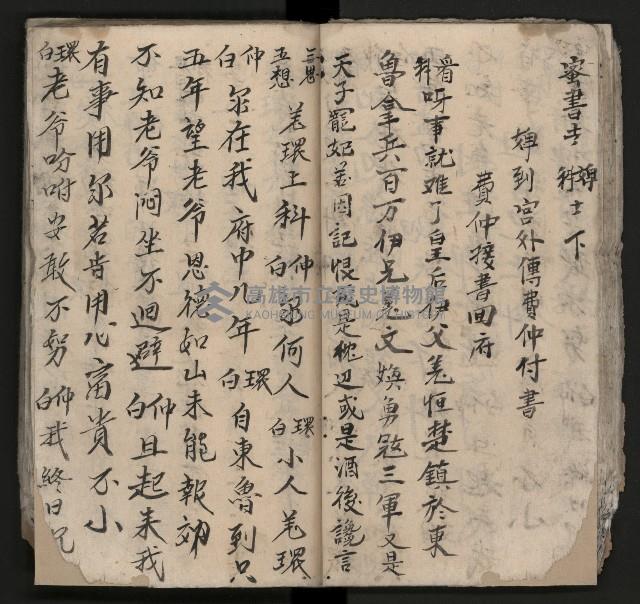 密書去 婢科 士下
婢到宮外傳費仲付書
費仲接書回府
看科呀事就难了皇后
父姜恒楚鎮於東
魯拿兵百万伊兄姜文煥勇冠三軍又是
天子寵妃若因記恨
是枕边或是酒後讒言
三思五想 姜環上科 仲白 何人 環白 小人姜環
仲白 尔在我府中八年 環白 自東魯到只
五年望老爷恩德如山未能報効
不知老爷悶坐不迴避 仲白 且起来我
有事用尔若肯用心富貴不小
環白 老爷吩咐安敢不努 仲白 我終日
高雄市立歷史博物館
KAOHSIUNG MUSEUM OF HISTORY